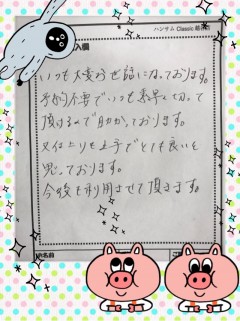 ハンサム Classic
入欄
いつも大変お世話になっております。
予約不要でいつも素早く切って
頂けるので助かっております。
又仕上りも上手でとても良いと
思っております。
今後も利用させて頂きます。
お名前